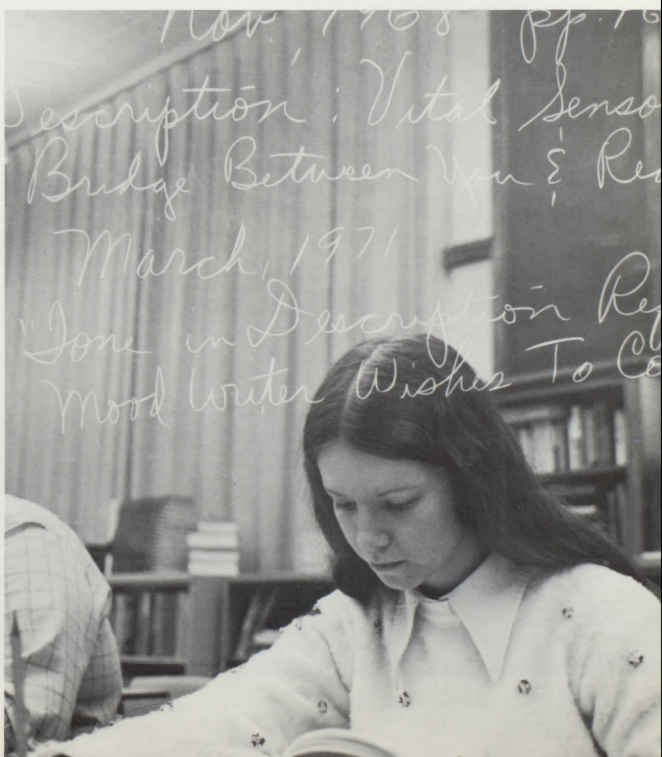 Nov. 1968 pp. 76
Description: Vital Senso
Bridge Between You & Rea
March, 1971
"Tone in Description Re
Mood Writer Wishes To Co